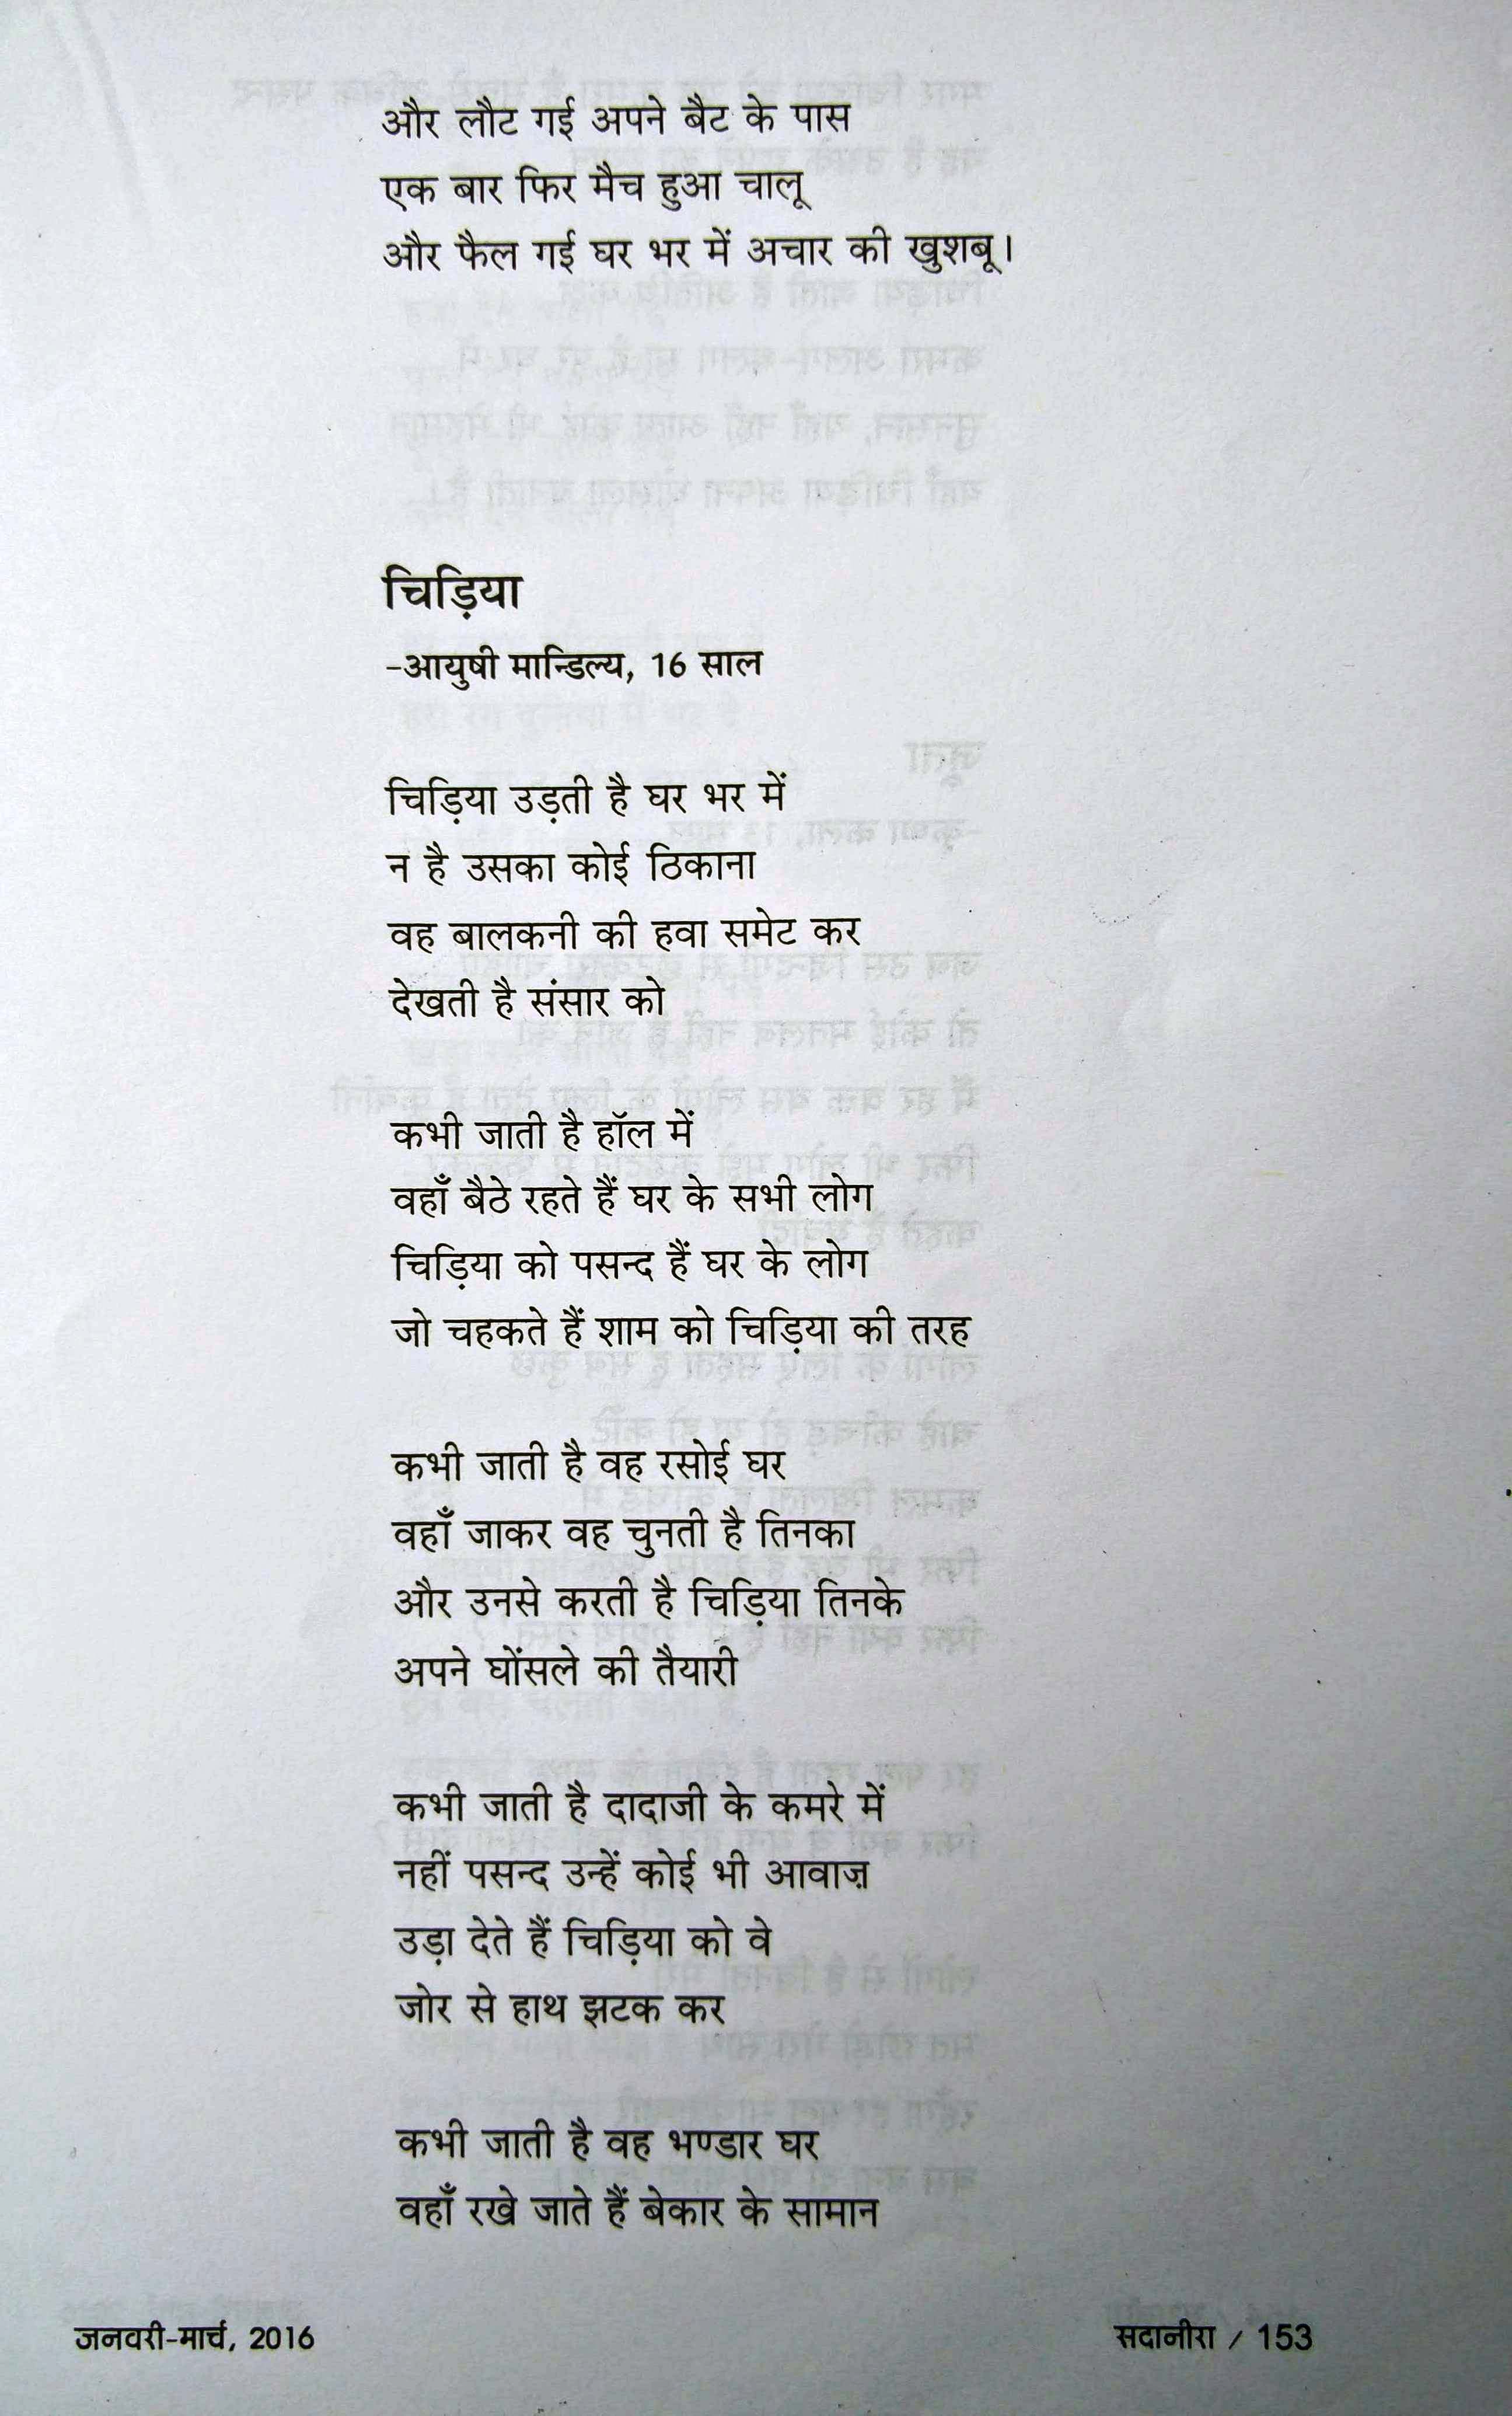 और लौट गई अपने बैट के पास
एक बार फिर मैच हुआ चालू
और फैल गई घर भर में अचार की खुशबू।
चिड़िया
-आयुषी मान्डिल्य, 16 साल
चिड़िया उड़ती है घर भर में
न है उसका कोई ठिकाना
वह बालकनी की हवा समेट कर
देखती है संसार को
कभी जाती है हॉल में
वहाँ बैठे रहते हैं घर के सभी लोग
चिड़िया को पसन्द हैं घर के लोग
जो चहकते हैं शाम को चिड़िया की तरह
कभी जाती है वह रसोई घर
वहाँ जाकर वह चुनती है तिनका
और उनसे करती है चिड़िया तिनके
अपने घोंसले की तैयारी
कभी जाती है दादाजी के कमरे में
नहीं पसन्द उन्हें कोई भी आवाज़
उड़ा देते हैं चिड़िया को वे
जोर से हाथ झटक कर
कभी जाती है वह भण्डार घर
वहाँ रखे जाते हैं बेकार के सामान
जनवरी-मार्च, 2016
सदानीरा / 153